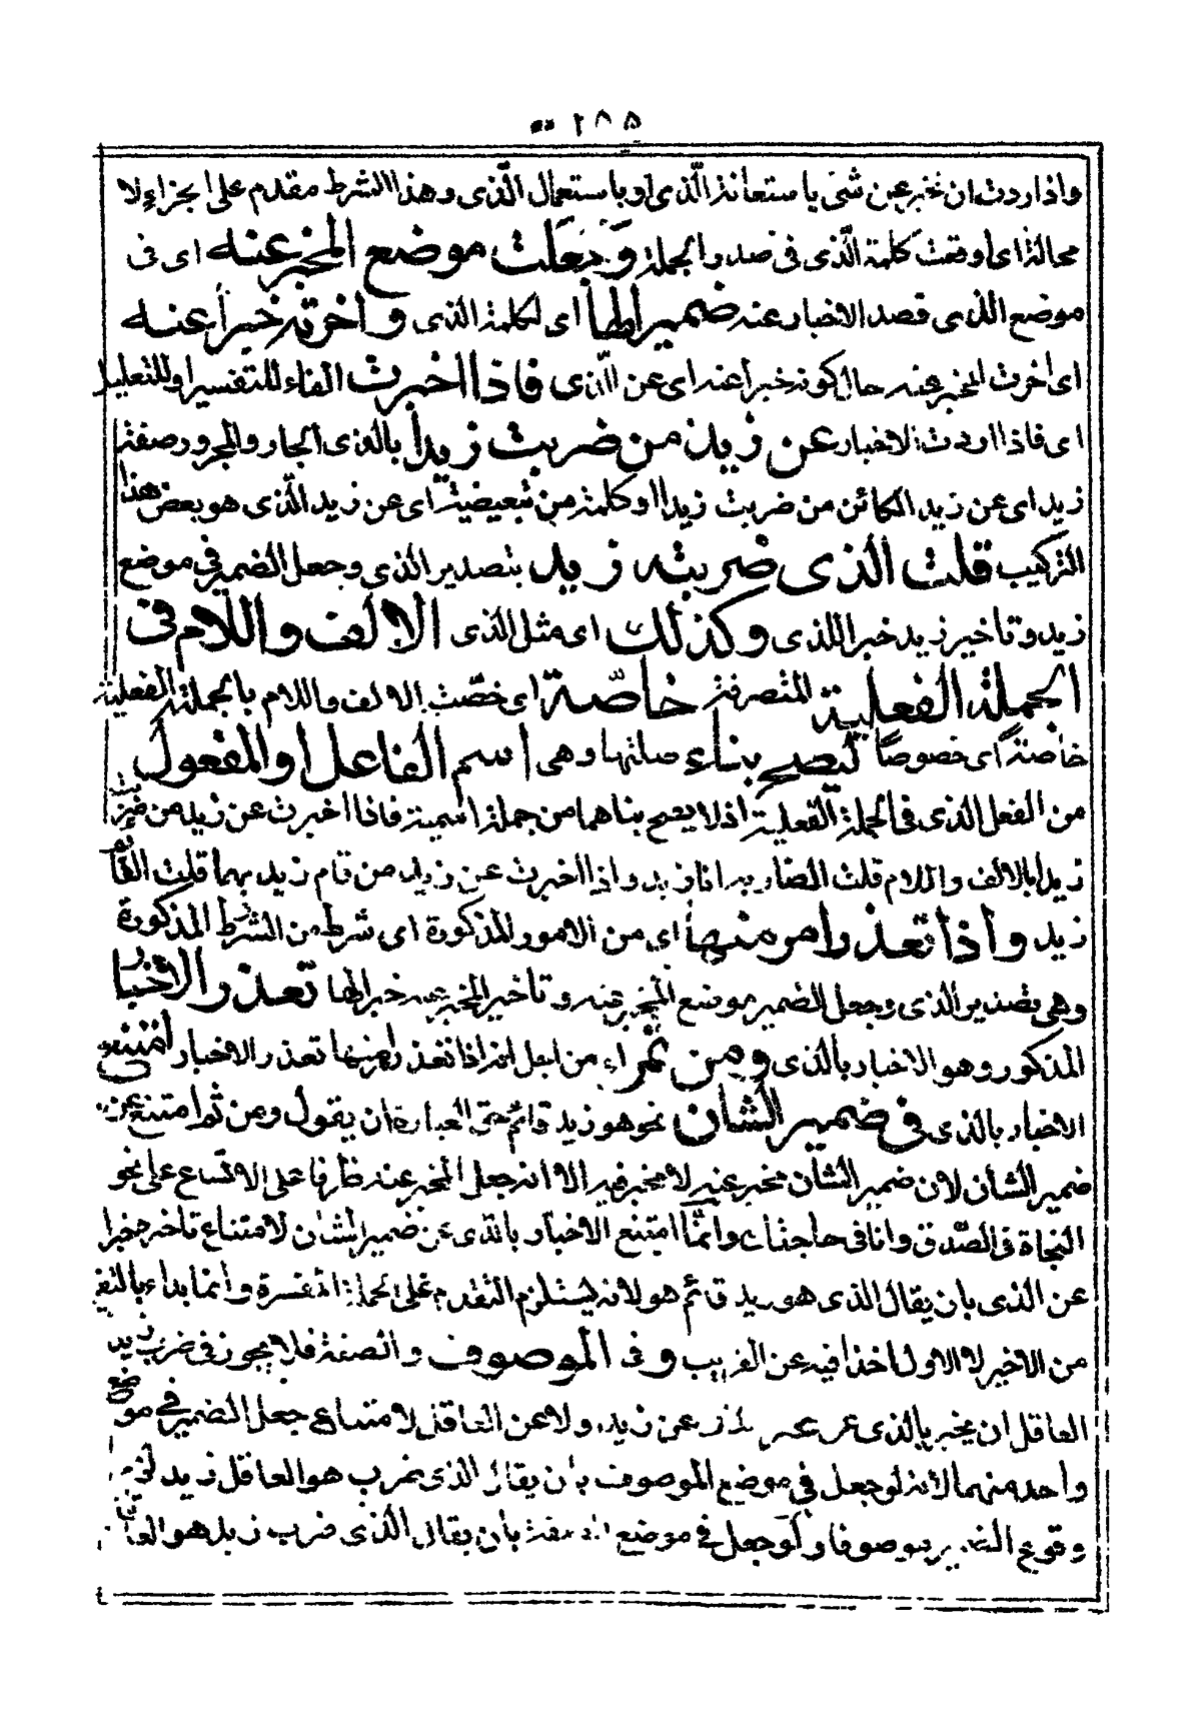 ٢٨٥
واذا اردت ان تخبر عن شئ باستعانة الذى او باستعمال الّذى وهذا الشرط مقدم على الجزاء لا
محالة اى اوقعت كلمة الّذى فى صدر الجملة وَجَعَلت موضع المخبر عنه اى فى
موضع الذى قصد الاخبار عنه ضميرا لها اى لكلمة الذى واخرته خبراً عنه
اى اخرت المخبر عنه حال كونه خبراً عنه اى عن الّذى فاذا اخبرت الفاء للتفسير او للتعليل
اى فاذا اردت الاخبار عن زيد من ضربت زيداً بالذى الجار والمجرور صفة
زيد اى عن زيد الكائن من ضربت زيدا او كلمة من تبعيضية اى عن زيد الّذى هو بعض هذا
التركيب قلت الذى ضربته زيد بتصدير الذى وجعل الضمير فى موضع
زيد وتاخير زيد خبرا للذى وكذلك اى مثل الذى الالف واللام فى
الجملة الفعلية المتصرفة خاصّة اى خصّت الالف واللام بالجملة الفعلية
خاصة اى خصوصًا ليصح بناء صلتها وهى اسم الفاعل او المفعول
من الفعل الذى فى الجملة الفعلية اذ لا يصح بناهما من جملة اسمية فاذا اخبرت عن زيد من ضربت
زيدا بالالف واللام قلت الضاربه انا زيد واذا اخبرت عن زيد من قام زيد بهما قلت القائم
زيد واذا تعذر امر منها اى من الامور المذكورة اى شرط من الشرط المذكورة
وهى تصدير الذى وجعل الضمير موضع المخبر عنه وتاخير المخبر عنه خبرا لها تعذر الاخبار
المذكور وهو الاخبار بالذى ومن ثم اى من اجل انه اذا تعذر امر منها تعذر الاخبار امتنع
الاخبار بالذى فى ضمير الشان نحو هو زيد قائم حق العبارة ان يقول ومن ثم امتنع عن
ضمير الشان لان ضمير الشان مخبر عنه لا مخبر فيه الا انه جعل المخبر عنه ظرفا على الاتساع على نحو
النجاة فى الصّدق وانا فى حاجتك وانّما امتنع الاخبار بالذى عن ضمير الشان لامتناع تاخره خبرا
عن الذى بان يقال الذى هو زيد قائم هو لانه يستلزم التقدم على الجملة المفسرة وانما بداء بالتفر
من الاخير لا الاول اخذا فيه عن القريب وفى الموصوف والصفة فلا يجوز فى ضرب زيد
العاقل ان يخبر بالذى عن زيد ولا عن العاقل لامتناع جعل الضمير فى موضع
واحد منهما لانه لو جعل فى موضع الموصوف بان يقال الذى ضرب هو العاقل زيد لزم
وقوع الضمير موصوفا ولو جعل فى موضع الصفة بان يقال الذى ضرب زيد هو العاقل